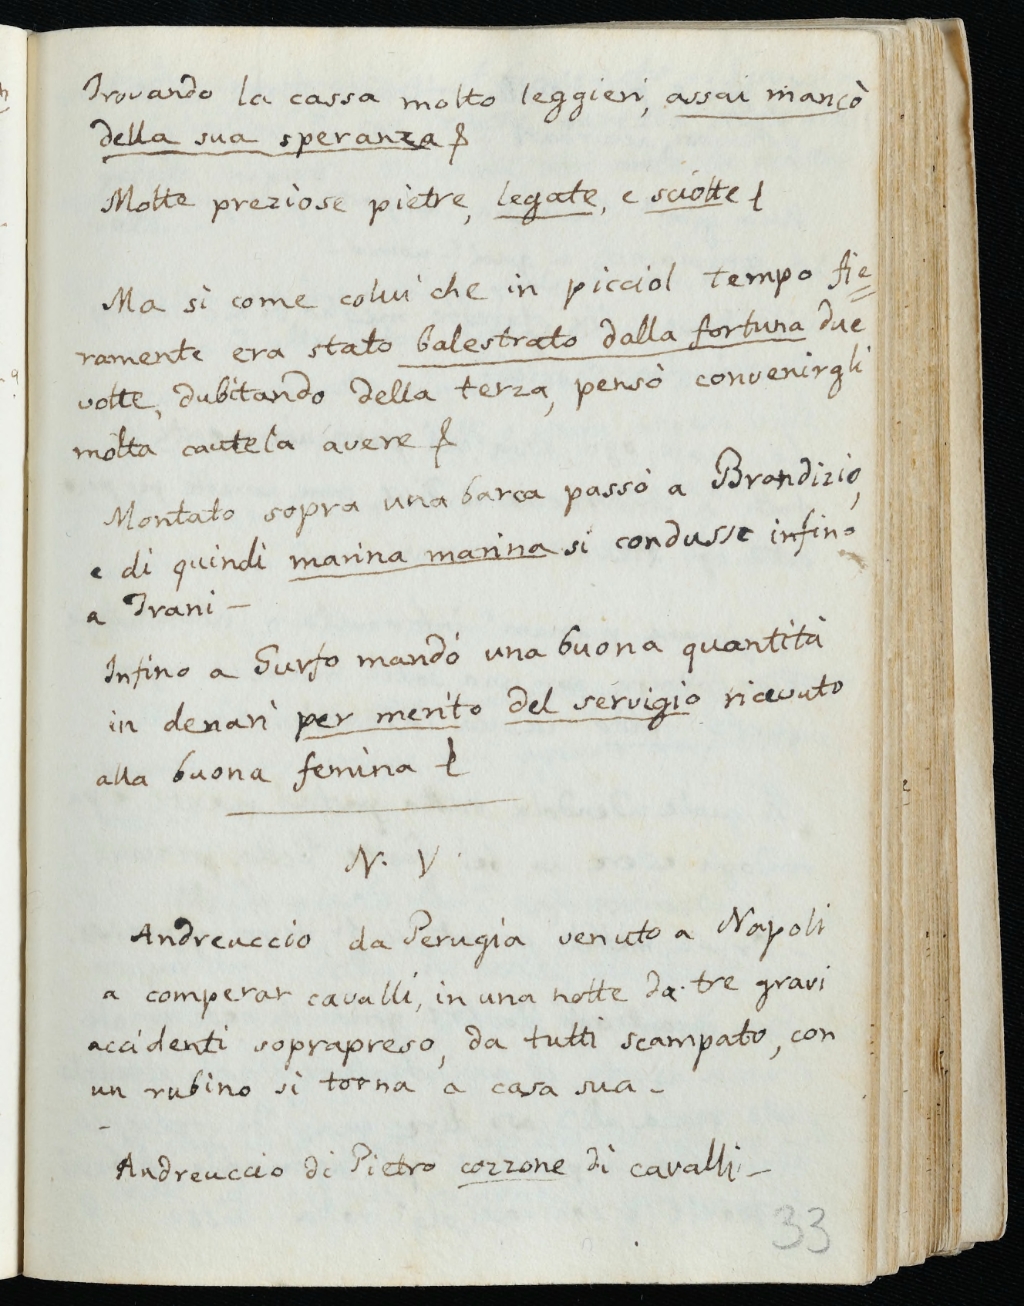 Trovando la cassa molto leggieri, assai mancò
della sua speranza
Molte preziose pietre, legate, e sciolte
Ma sì come colui che in picciol tempo fie
ramente era stato balestrato dalla fortuna due
volte, dubitando della terza, pensò convenirgli
molta cautela avere
Montato sopra una barca passò a Brandizio,
e di quindi marina marina si condusse infino
a Trani –
Infino a Gurfo mandò una buona quantità
in denari per merito del servigio ricevuto
alla buona femina
N. V
Andreuccio da Perugia venuto a Napoli
a comperar cavalli, in una notte da tre gravi
accidenti soprapreso, da tutti scampato, con
un rubino si torna a casa sua –
Andreuccio di Pietro cozzone di cavalli –
33